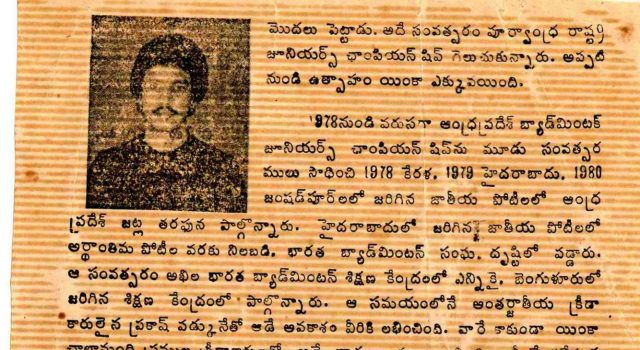 మొదలు పెట్టాడు. అదే సంవత్సరం పూర్వాంధ్ర రాష్ట్ర
జూనియర్స్ ఛాంపియన్ షిప్ గెలుచుకున్నారు. అప్పటి
నుండి ఉత్సాహం యింకా ఎక్కువయింది.
1978నుండి వరుసగా ఆంధ్రప్రదేశ్ బ్యాడ్మింటన్
జూనియర్స్ ఛాంపియన్ షిప్‌ను మూడు సంవత్సర
ములు సాధించి 1978 కేరళ, 1979 హైదరాబాదు, 1980
జంషడ్‌పూర్‌లలో జరిగిన జాతీయ పోటీలలో ఆంధ్ర
ప్రదేశ్ జట్ల తరఫున పాల్గొన్నారు. హైదరాబాదులో జరిగిన జాతీయ పోటీలలో
అర్థాంతిమ పోటీల వరకు నిలబడి, భారత బ్యాడ్మింటన్ సంఘ, దృష్టిలో వడ్డారు.
ఆ సంవత్సరం అఖిల భారత బ్యాడ్మింటన్ శిక్షణ కేంద్రంలో ఎన్నికై, బెంగుళూరులో
జరిగిన శిక్షణ కేంద్రంలో పాల్గొన్నారు. ఆ సమయంలోనే ఆంతర్జాతీయ క్రీడా
కారులైన ప్రకాష్ పడ్కునేతో ఆడే అవకాశం వీరికి లభించింది. వారే కాకుండా యింకా